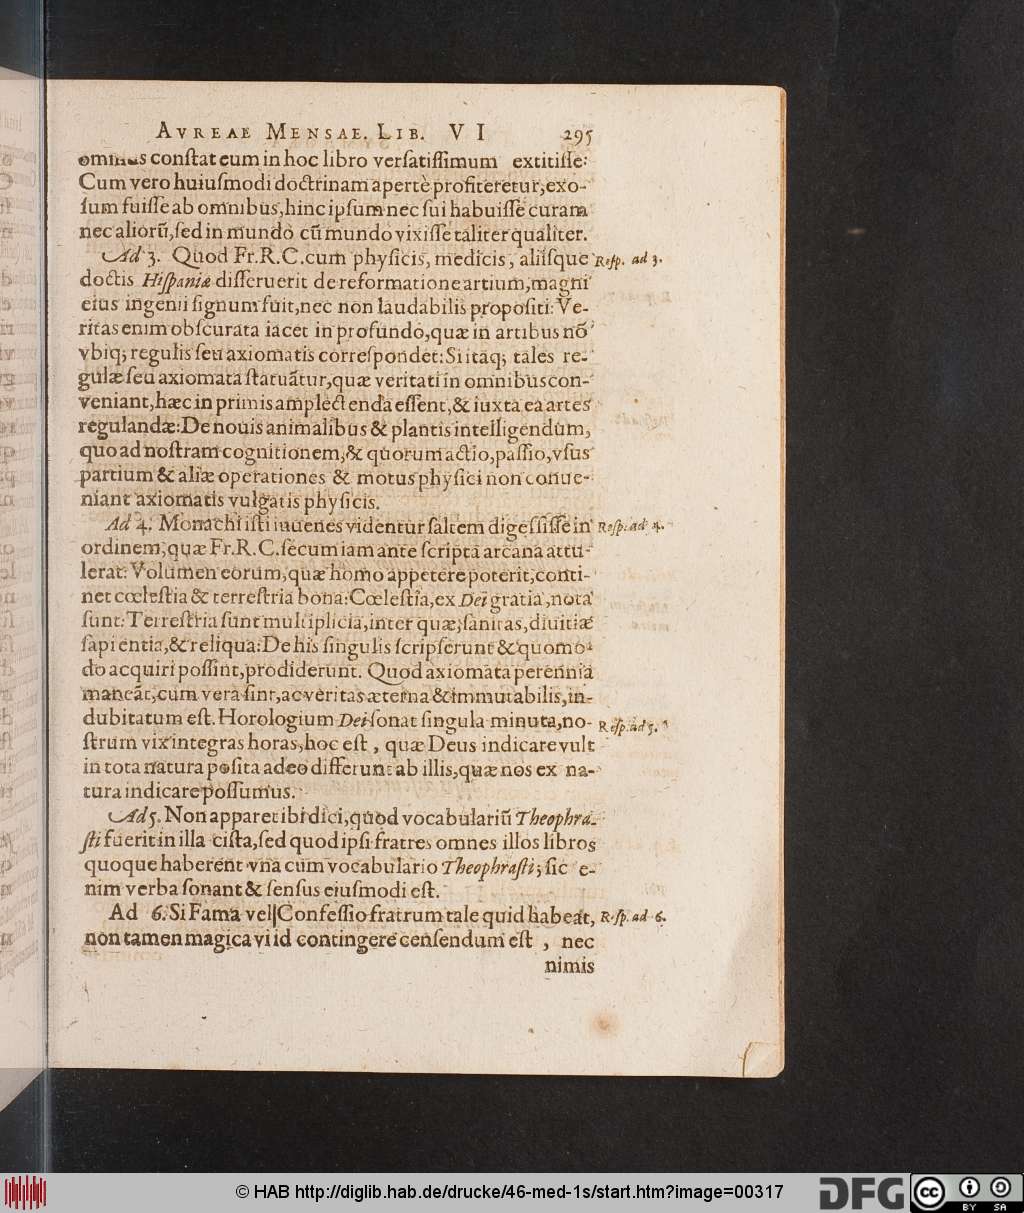 AVREAE MENSAE. LIB. VI 295
ominus conſtat eum in hoc libro verſatiſſimum extitiſſe:
Cum vero huiuſmodi doctrinam apertè profiteretur, exo-
ſum fuiſſe ab omnibus, hinc ipſum nec ſui habuiſſe curam
nec aliorũ, ſed in mundo cũ mundo vixiſſe taliter qualiter.
Ad 3. Quod Fr. R. C. cum phyſicis, medicis, aliiſque Reſp. ad 3.
doctis Hiſpaniæ diſſeruerit de reformatione artium, magni
eius ingenii ſignum fuit, nec non laudabilis propoſiti: Ve-
ritas enim obſcurata iacet in profundo, quæ in artibus nõ
vbiq; regulis ſeu axiomatis correſpondet: Si itaq; tales re-
gulæ ſeu axiomata ſtatuãtur, quæ veritati in omnibus con-
veniant, hæc in primis amplectenda eſſent, & iuxta ea artes
regulandæ: De nouis animalibus & plantis intelligendum,
quo ad noſtram cognitionem, & quorum actio, paſſio, vſus
partium & aliæ operationes & motus phyſici non conue-
niant axiomatis vulgatis phyſicis.
Ad 4. Monachi iſti iuuenes videntur ſaltem digeſſiſſe in Reſp. ad 4.
ordinem, quæ Fr. R. C. ſecum iam ante ſcripta arcana attu-
lerat: Volumen eorum, quæ homo appetere poterit, conti-
net cœleſtia & terreſtria bona: Cœleſtia, ex Dei gratia, nota
ſunt: Terreſtria ſunt multiplicia, inter quæ, ſanitas, diuitiæ
ſapientia, & reliqua: De his ſingulis ſcripſerunt & quomo-
do acquiri poſſint, prodiderunt. Quod axiomata perennia
maneãt, cum vera ſint, ac veritas æterna & immutabilis, in-
dubitatum eſt. Horologium Dei ſonat ſingula minuta, no- Reſp. ad 5.
ſtrum vix integras horas, hoc eſt, quæ Deus indicare vult
in tota natura poſita adeo differunt ab illis, quæ nos ex na-
tura indicare poſſumus.
Ad 5. Non apparet ibi dici, quod vocabulariũ Theophra-
ſti fuerit in illa ciſta, ſed quod ipſi fratres omnes illos libros
quoque haberent vna cum vocabulario Theophraſti; ſic e-
nim verba ſonant & ſenſus eiuſmodi eſt.
Ad 6. Si Fama vel Confeſſio fratrum tale quid habeat, Reſp. ad 6.
non tamen magica vi id contingere cenſendum eſt, nec
nimis
© HAB http://diglib.hab.de/drucke/46-med-1s/start.htm?image=00317
DFG cc BY SA